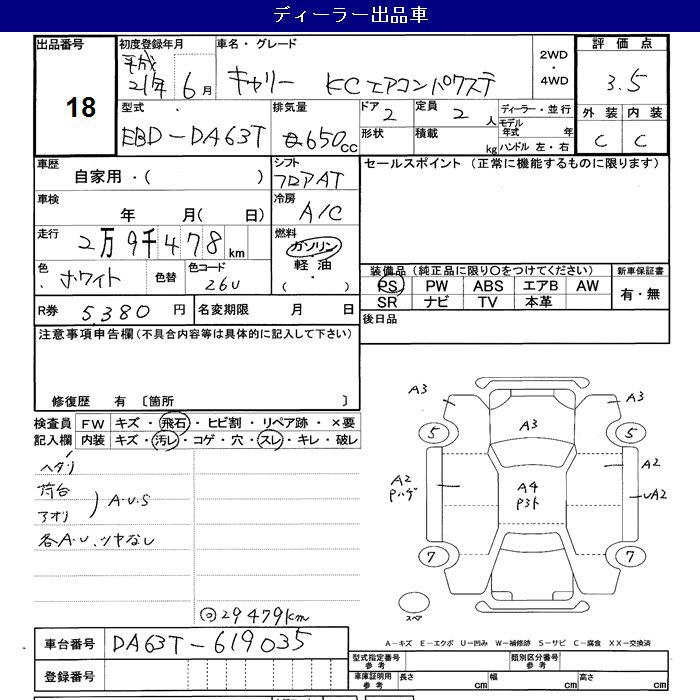 ディーラー出品車
出品番号 18
初度登録年月 平成 21年 6月
車名・グレード キャリー KC エアコンパワステ
2WD・4WD
評価点 3.5
型式 EBD-DA63T
排気量 650cc
ドア 2
形状
定員 2人
積載 kg
ディーラー・並行
モデル年式 年
ハンドル 左・右
外装 内装
C C
車歴 自家用・( )
シフト フロアAT
セールスポイント (正常に機能するものに限ります)
車検 年 月( 日)
冷房 A/C
走行 2万9千478km
燃料 ガソリン・軽油・( )
色 ホワイト 色替 色コード 26U
装備品 (純正品に限り○をつけてください) 新車保証書
PS PW ABS エアB AW 有・無
SR ナビ TV 本革
R券 5,380円 名変期限 月 日
後日品
注意事項申告欄(不具合内容等は具体的に記入して下さい)
修復歴 有 〔箇所 〕
検査員 FW キズ・飛石・ヒビ割・リペア跡・×要
記入欄 内装 キズ・汚レ・コゲ・穴・スレ・キレ・破レ
ヘタリ
荷台
アオリ ) A・U・S
各A・U、ツヤなし
◎29479km
A3 A3
A3
5 5
A2
Pハゲ
A4
P3ト
A2
UA2
7 7
スペア
A-キズ E-エクボ U-凹み W-補修跡 S-サビ C-腐食 XX-交換済
車台番号 DA63T-619035
型式指定番号 参考 類別区分番号 参考
登録番号
車庫証明用 参考 長さ cm 幅 cm 高さ cm